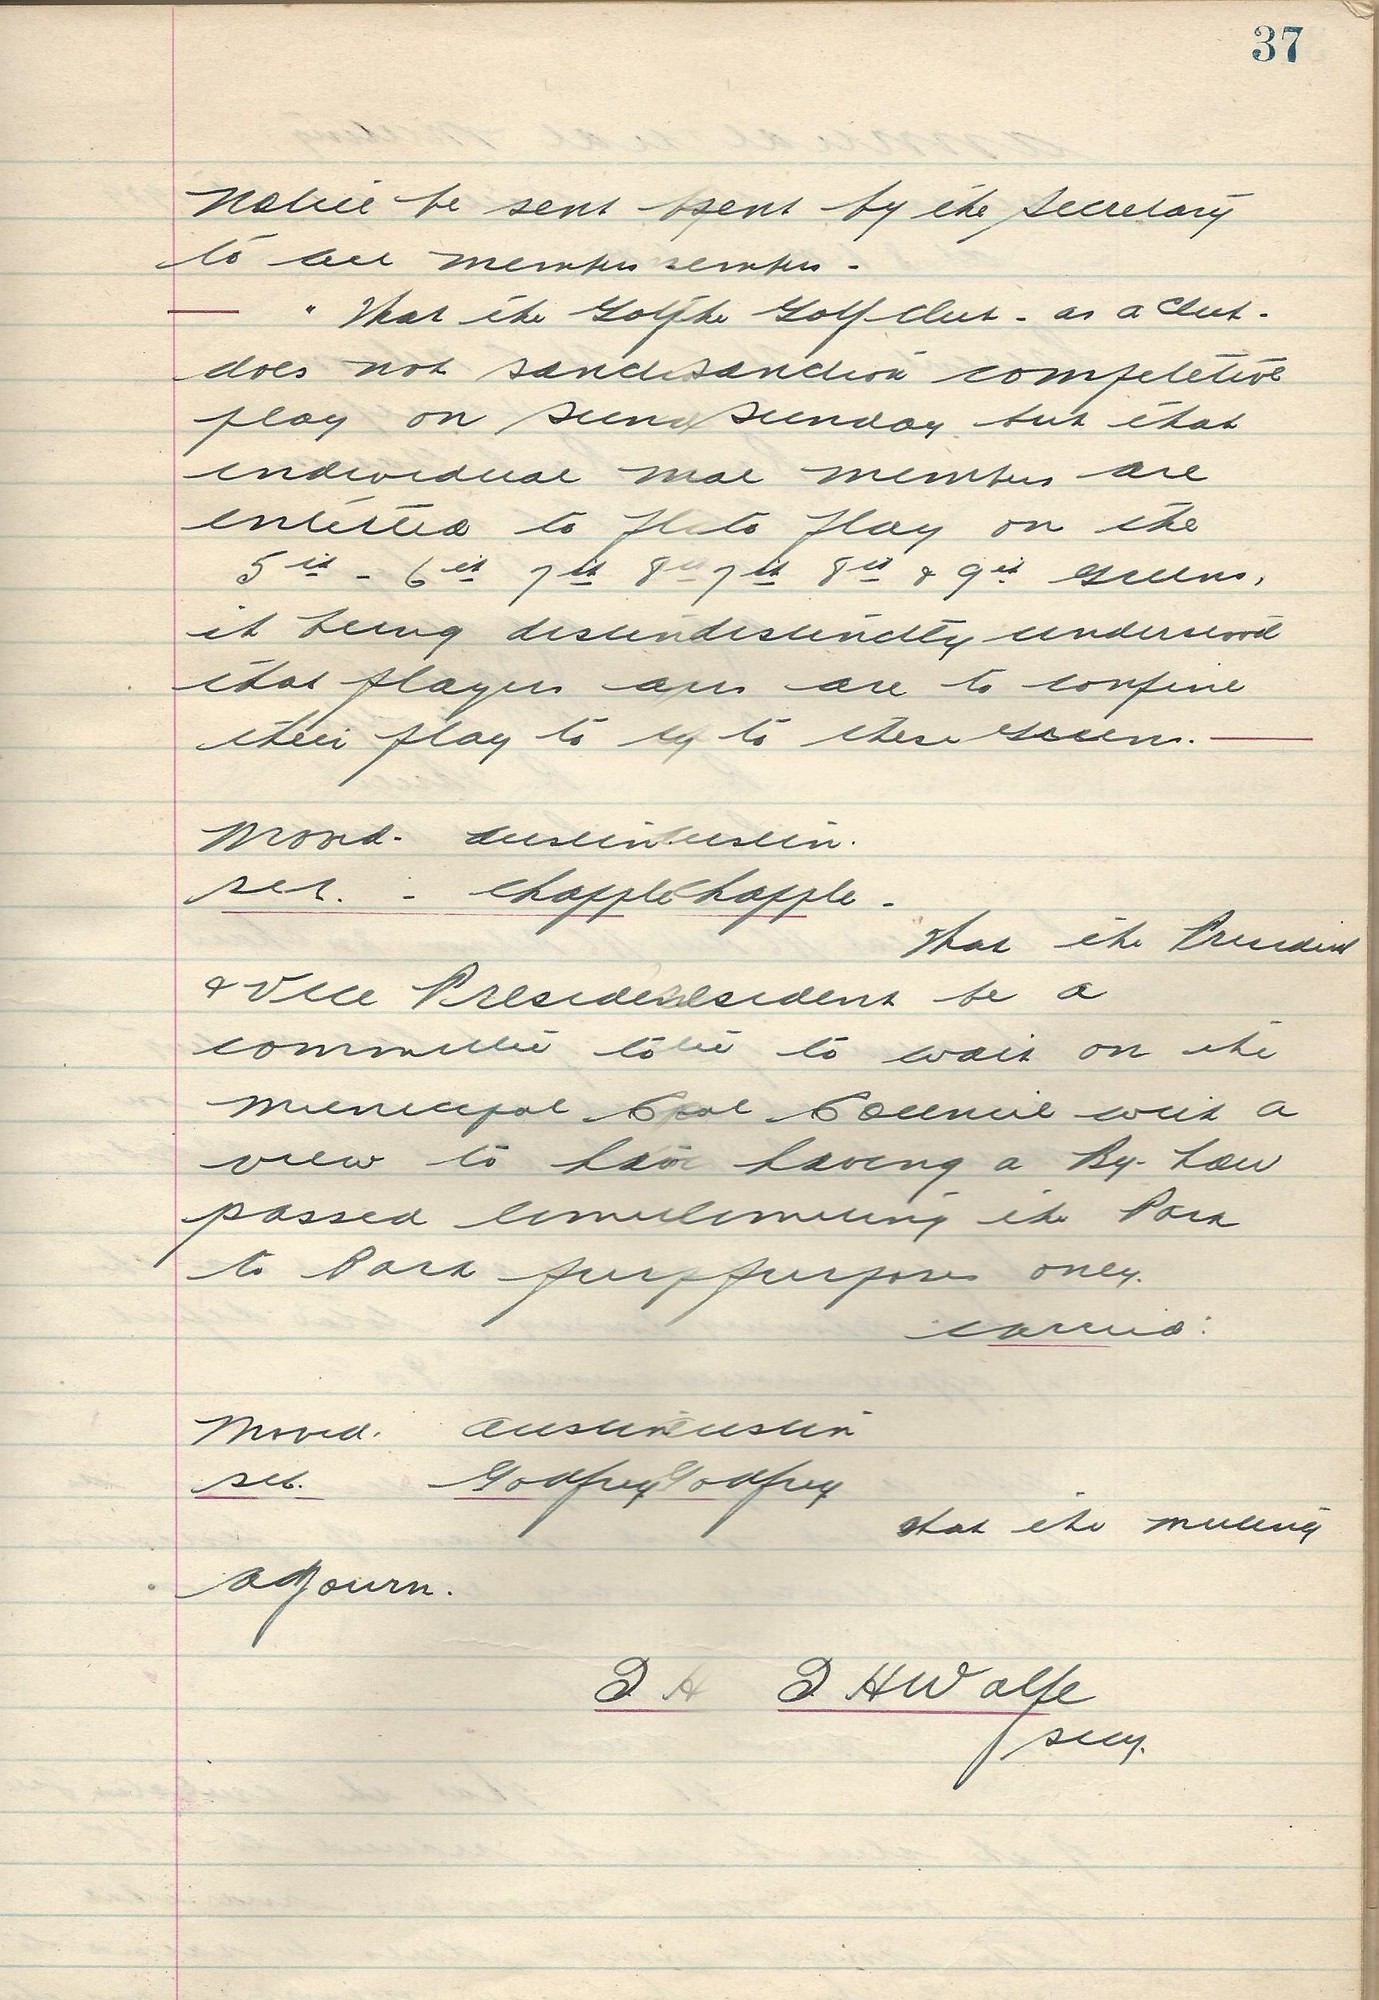 37
Notice be sent by the Secretary
to all members -
" That the Golf Club - as a Club -
does not sanction competitive
play on Sunday but that
individual members are
entitled to play on the
5th - 6th 7th 8th & 9th Greens,
it being distinctly understood
that players are to confine
their play to these Greens.
Moved - Austin.
sec. - Chapple -
That the President
& Vice President be a
committee to wait on the
Municipal Council with a
view to having a By-Law
passed limiting the Park
to Park purposes only.
carried.
Moved. Austin
sec. Godfrey
that the meeting
adjourn.
D H Wolfe
secy.